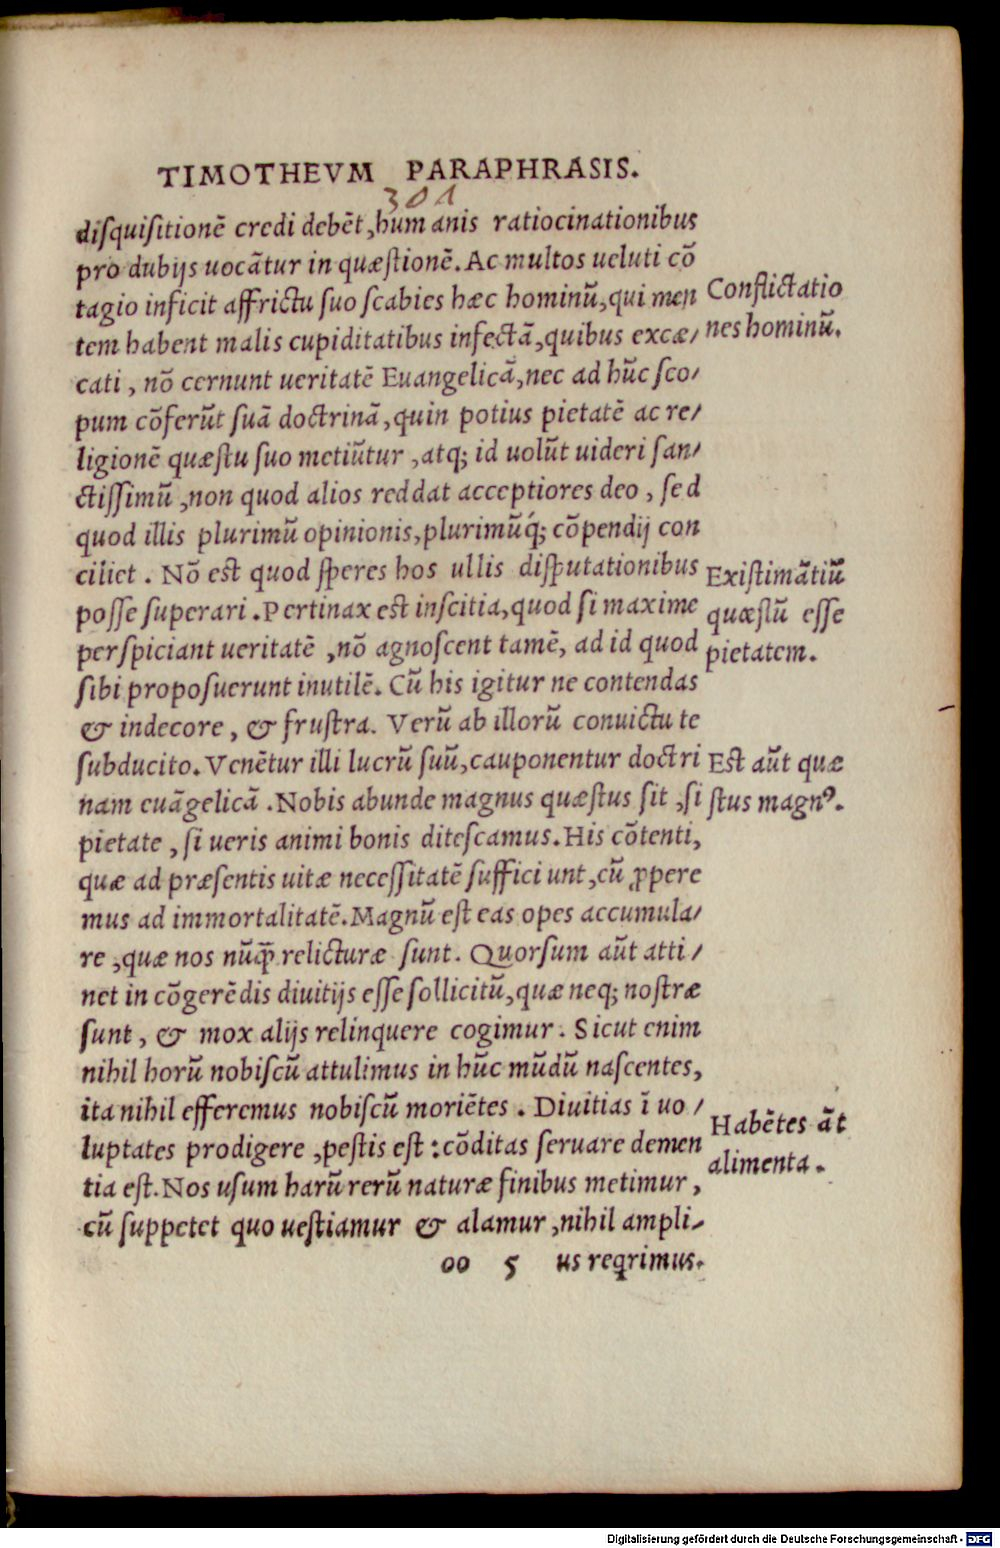 TIMOTHEVM PARAPHRASIS.
301
disquisitionē credi debēt, humanis ratiocinationibus
pro dubijs uocātur in quæstionē. Ac multos ueluti cō
tagio inficit affrictu suo scabies hæc hominū, qui men
tem habent malis cupiditatibus infectā, quibus excæ/
cati, nō cernunt ueritatē Euangelicā, nec ad hūc sco/
pum cōferūt suā doctrinā, quin potius pietatē ac re/
ligionē quæstu suo metiūtur, atq; id uolūt uideri san/
ctissimū, non quod alios reddat acceptiores deo, sed
quod illis plurimū opinionis, plurimūq́; cōpendij con
ciliet. Nō est quod speres hos ullis disputationibus
posse superari. Pertinax est inscitia, quod si maxime
perspiciant ueritatē, nō agnoscent tamē, ad id quod
sibi proposuerunt inutilē. Cū his igitur ne contendas
& indecore, & frustra. Verū ab illorū conuictu te
subducito. Venētur illi lucrū suū, cauponentur doctri
nam euāgelicā. Nobis abunde magnus quæstus sit, si
pietate, si ueris animi bonis ditescamus. His cōtenti,
quæ ad præsentis uitæ necessitatē sufficiunt, cū ꝓpere
mus ad immortalitatē. Magnū est eas opes accumula/
re, quæ nos nūq̃ relicturæ sunt. Quorsum aūt atti/
net in cōgerēdis diuitijs esse sollicitū, quæ neq; nostræ
sunt, & mox alijs relinquere cogimur. Sicut enim
nihil horū nobiscū attulimus in hūc mūdū nascentes,
ita nihil efferemus nobiscū moriētes. Diuitias ī uo/
luptates prodigere, pestis est: cōditas seruare demen
tia est. Nos usum harū rerū naturæ finibus metimur,
cū suppetet quo uestiamur & alamur, nihil ampli/
oo 5 us reqrimus.
Conflictatio
nes hominū.
Existimātiū
quæstū esse
pietatem.
Est aūt quæ
stus magnꝰ.
Habētes āt
alimenta.
Digitalisierung gefördert durch die Deutsche Forschungsgemeinschaft - DFG